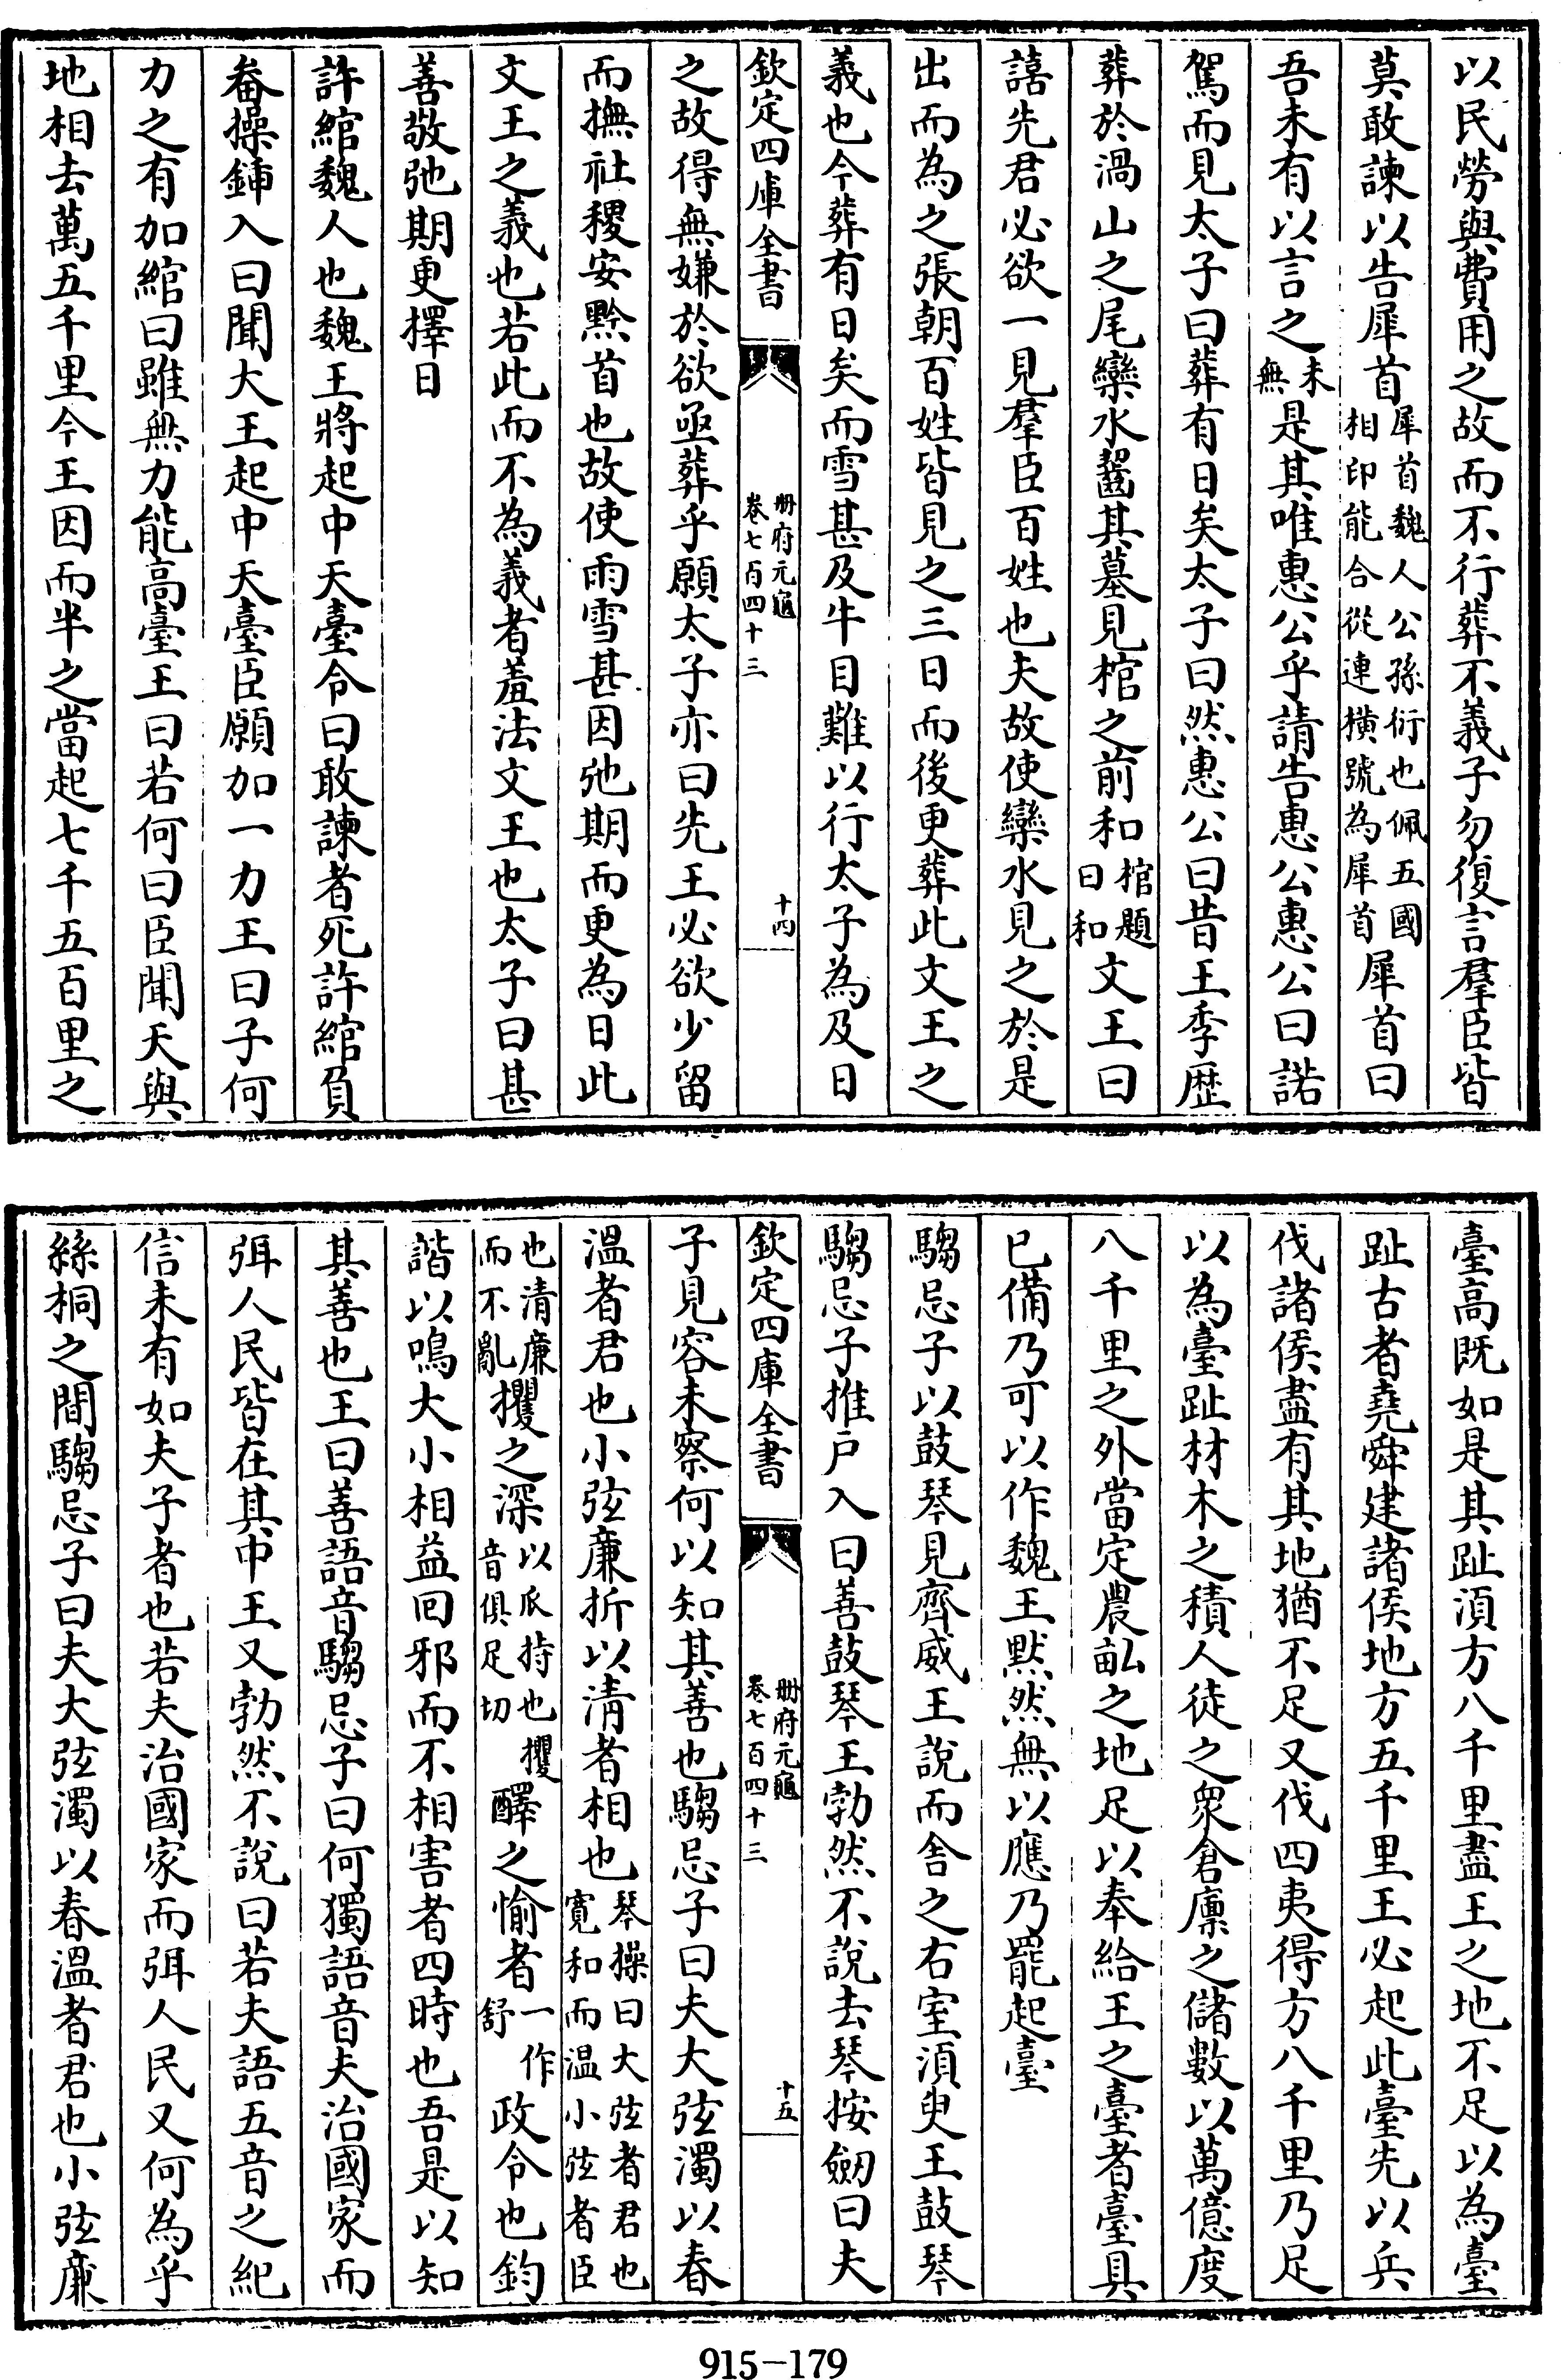 以民勞與費用之故而不行葬不義子勿復言羣臣皆
莫敢諫以告犀首犀首魏人公孫衍也佩五國相印能合從連橫號為犀首犀首曰
吾未有以言之未無是其唯惠公乎請告惠公惠公曰諾
駕而見太子曰葬有日矣太子曰然惠公曰昔王季歴
葬於渦山之尾欒水齧其墓見棺之前和棺題曰和文王曰
譆先君必欲一見羣臣百姓也夫故使欒水見之於是
出而為之張朝百姓皆見之三日而後更葬此文王之
義也今葬有日矣而雪甚及牛目難以行太子為及日
欽定四庫全書
册府元龜
卷七百四十三
十四
之故得無嫌於欲亟葬乎願太子亦曰先王必欲少留
而撫社稷安黔首也故使雨雪甚因弛期而更為日此
文王之義也若此而不為義者羞法文王也太子曰甚
善敬弛期更擇日
許綰魏人也魏王將起中天臺令曰敢諫者死許綰負
畚操鍤入曰聞大王起中天臺臣願加一力王曰子何
力之有加綰曰雖無力能高臺王曰若何曰臣聞天與
地相去萬五千里今王因而半之當起七千五百里之
臺高既如是其趾湏方八千里盡王之地不足以為臺
趾古者堯舜建諸侯地方五千里王必起此臺先以兵
伐諸侯盡有其地猶不足又伐四夷得方八千里乃足
以為臺趾材木之積人徒之衆倉廪之儲數以萬億度
八千里之外當定農畝之地足以奉給王之臺者臺具
已備乃可以作魏王默然無以應乃罷起臺
騶忌子以鼓琴見齊威王說而舍之右室湏臾王鼓琴
騶忌子推户入曰善鼓琴王勃然不說去琴按劒曰夫
欽定四庫全書
册府元龜
卷七百四十三
十五
子見容未察何以知其善也騶忌子曰夫大弦濁以春
溫者君也小弦廉折以清者相也琴操曰大弦者君也寛和而温小弦者臣
也清廉而不亂攫之深以爪持也攫音俱足切醳之愉者一作舒政令也鈞
諧以鳴大小相益回邪而不相害者四時也吾是以知
其善也王曰善語音騶忌子曰何獨語音夫治國家而
弭人民皆在其中王又勃然不說曰若夫語五音之紀
信未有如夫子者也若夫治國家而弭人民又何為乎
絲桐之間騶忌子曰夫大弦濁以春溫者君也小弦廉
915-179